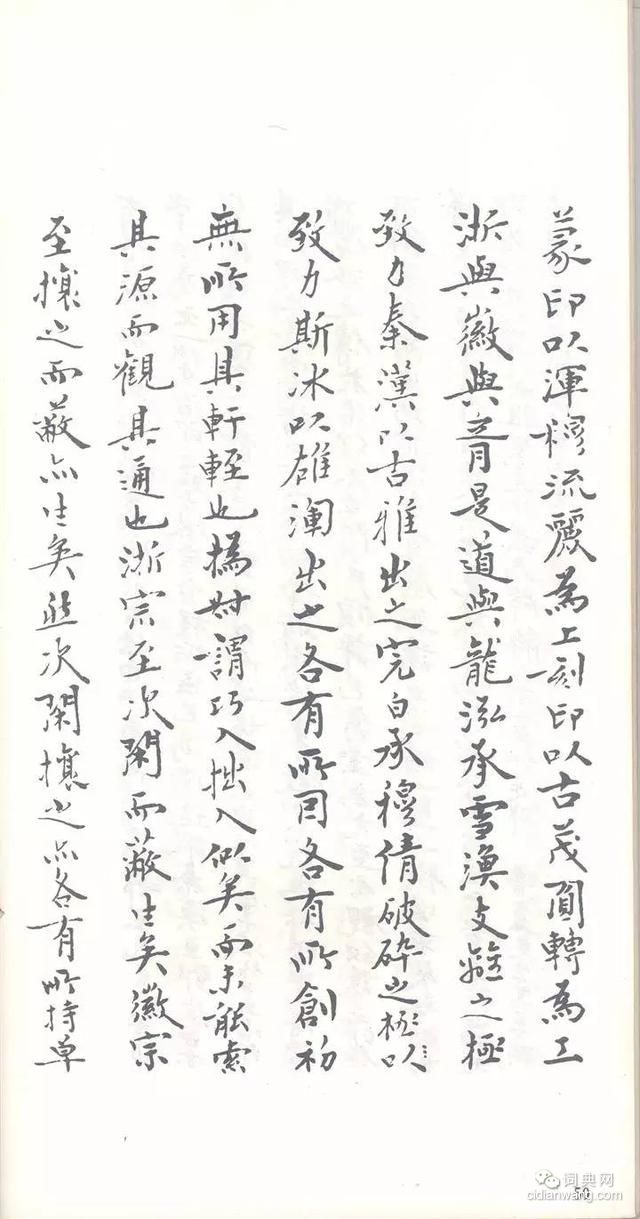 篆印以渾穆流麗為上刻印以古茂圓轉為工
浙與徽與育是道與龍泓承雪漁支離之極
致力秦漢以古雅出之完白承穆倩破碎之極以
致力斯冰以雄闊出之各有所因各有所創初
無所用其軒輊也撝叔謂巧入拙入似矣而未能索
其源而觀其通也浙宗至次閑而蔽生矣徽宗
至攘之而蔽亦生矣然次閑攘之亦各有所持草
50
词典网
cidianwang.com